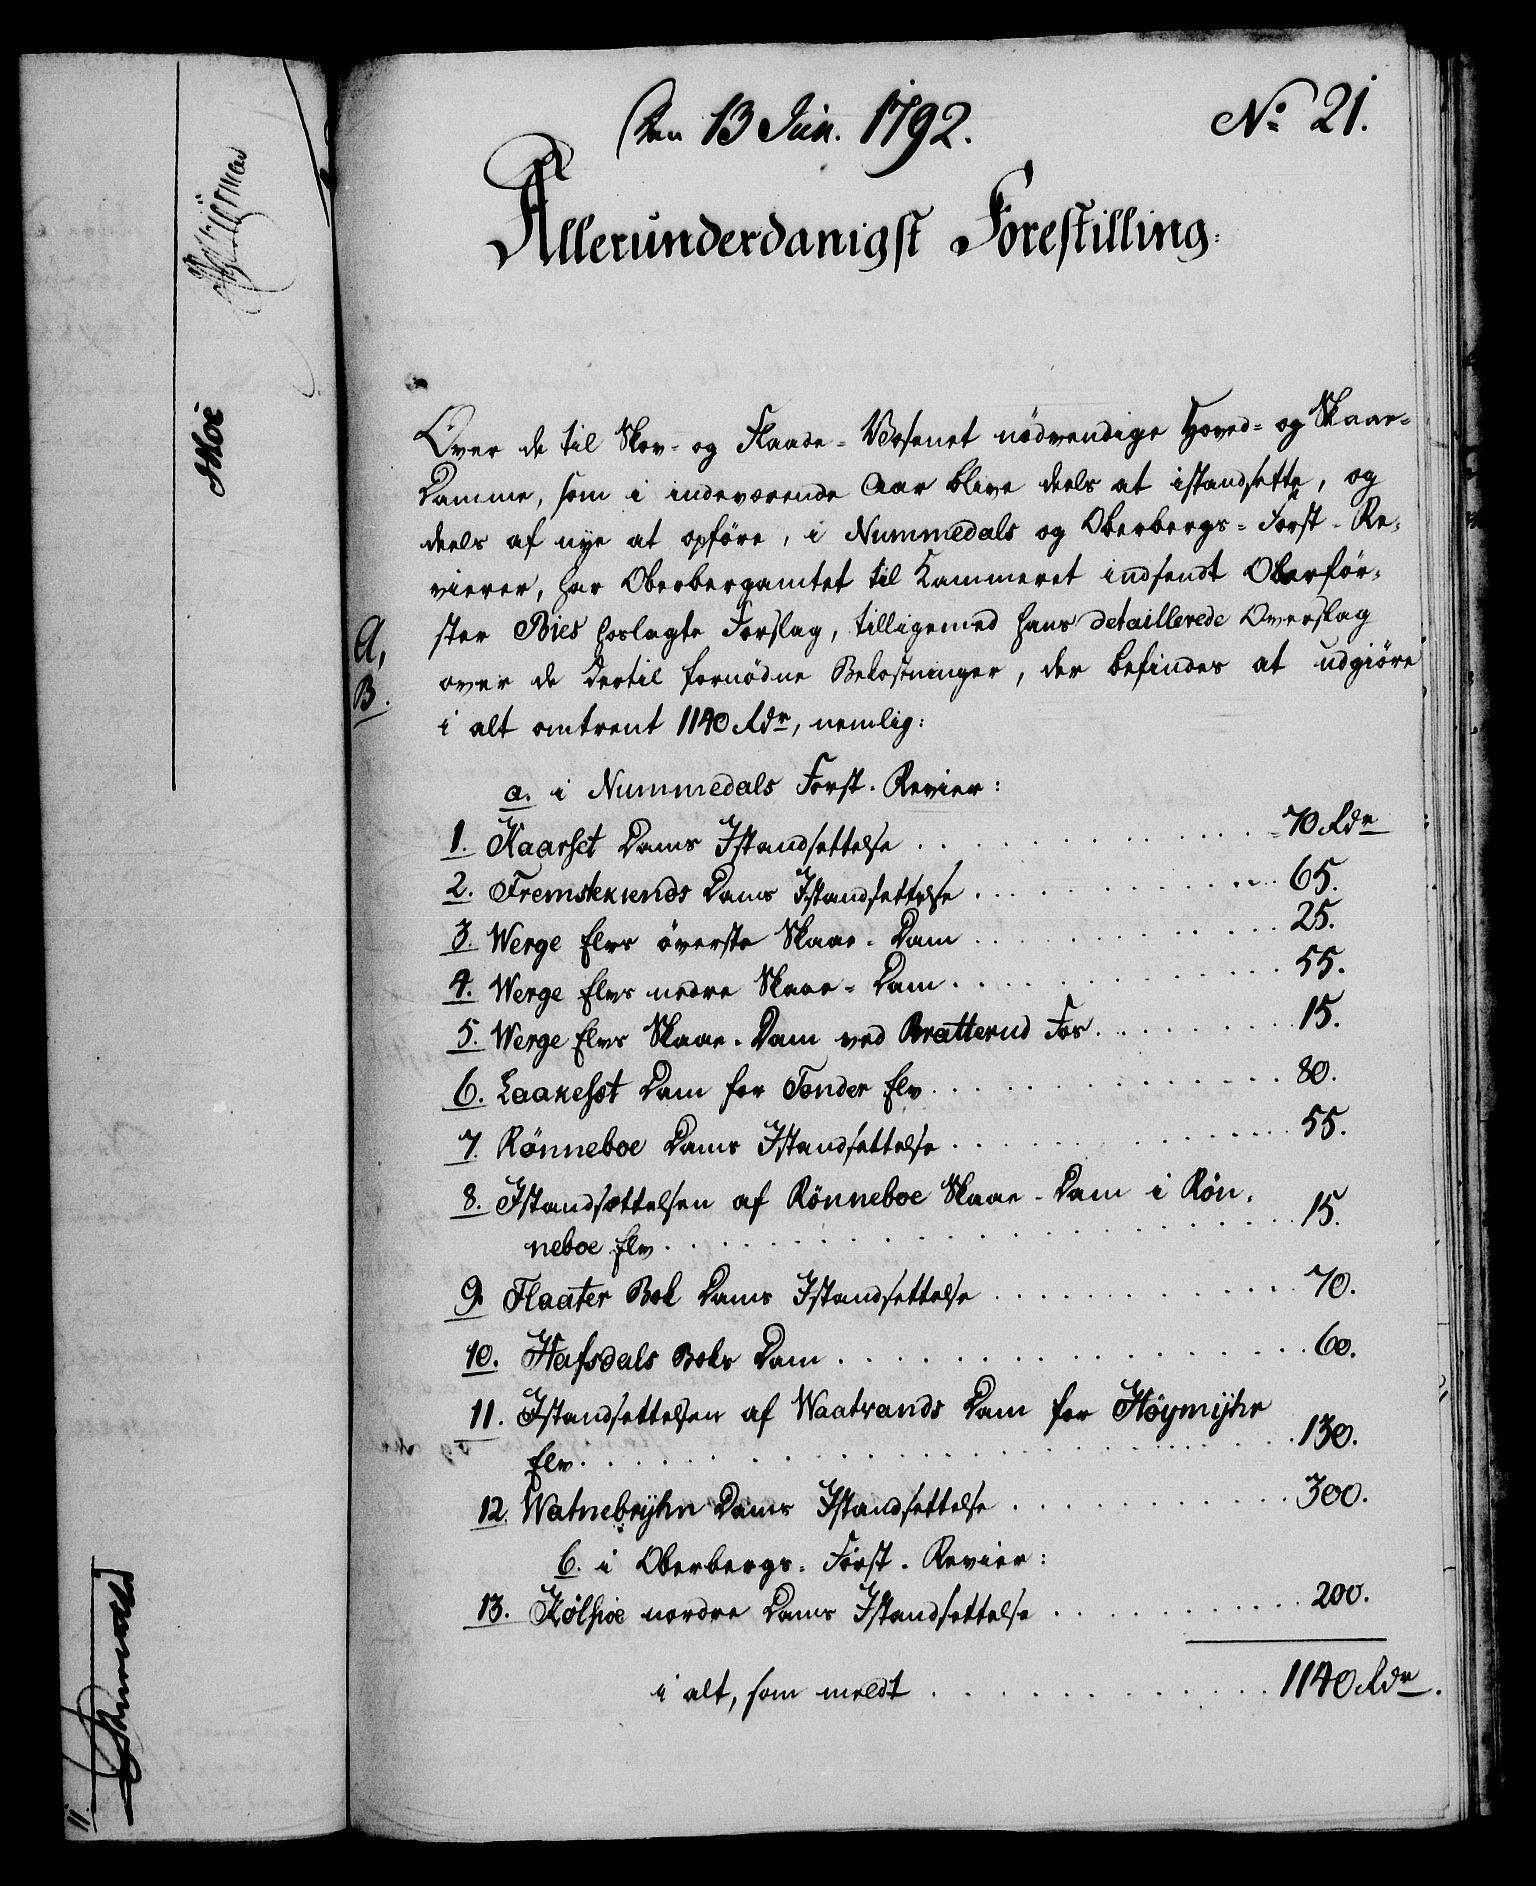 Den 13 Jun. 1792.
No 21.
Allerunderdanigst Forestilling:
Over de til Skov- og Flaade-Væsenet nödvendige Hoved- og Skaar-
Damme, som i indeværende Aar blive deels at istandsette, og
deels af nye at opföre, i Nummedals og Oberbergs-Forst-Re-
vierer, har Oberbergamtet til Kammeret indsendt Oberför-
ster Bies hoslagte Forslag, tilligemed hans detaillerede Overslag
A,
over de dertil fornödne Bekostninger, der befindes at udgiöre
B.
i alt omtrent 1140 Rdr, nemlig:
a. i Nummedals Forst-Revier:
1. Kaarset Dams Istandsettelse 70 Rdr
2. Dams Istandsettelse 65.
3. Werge Elvs överste Skaar-Dam 25.
4. Werge Elvs nedre Skaar-Dam 55.
5. Werge Elvs Skaar-Dam ved Bratterud Fos 15.
6. Dam for Tonder Elv 80.
7. Rönneboe Dams Istandsettelse 55.
8. Istandsættelsen af Rönneboe Skaar-Dam i Rön-
neboe Elv 15.
9. Flaater Bek Dams Istandsettelse 70.
10. Hafsdals Beks Dam 60.
11. Istandsettelsen af Waatvands Dam for Höymyhr
Elv 130.
12. Watnebryhn Dams Istandsettelse 300.
b. i Oberbergs-Forst-Revier:
13. Kolsioe nordre Dams Istandsettelse 200.
i alt, som meldt 1140 Rdr.
Moe